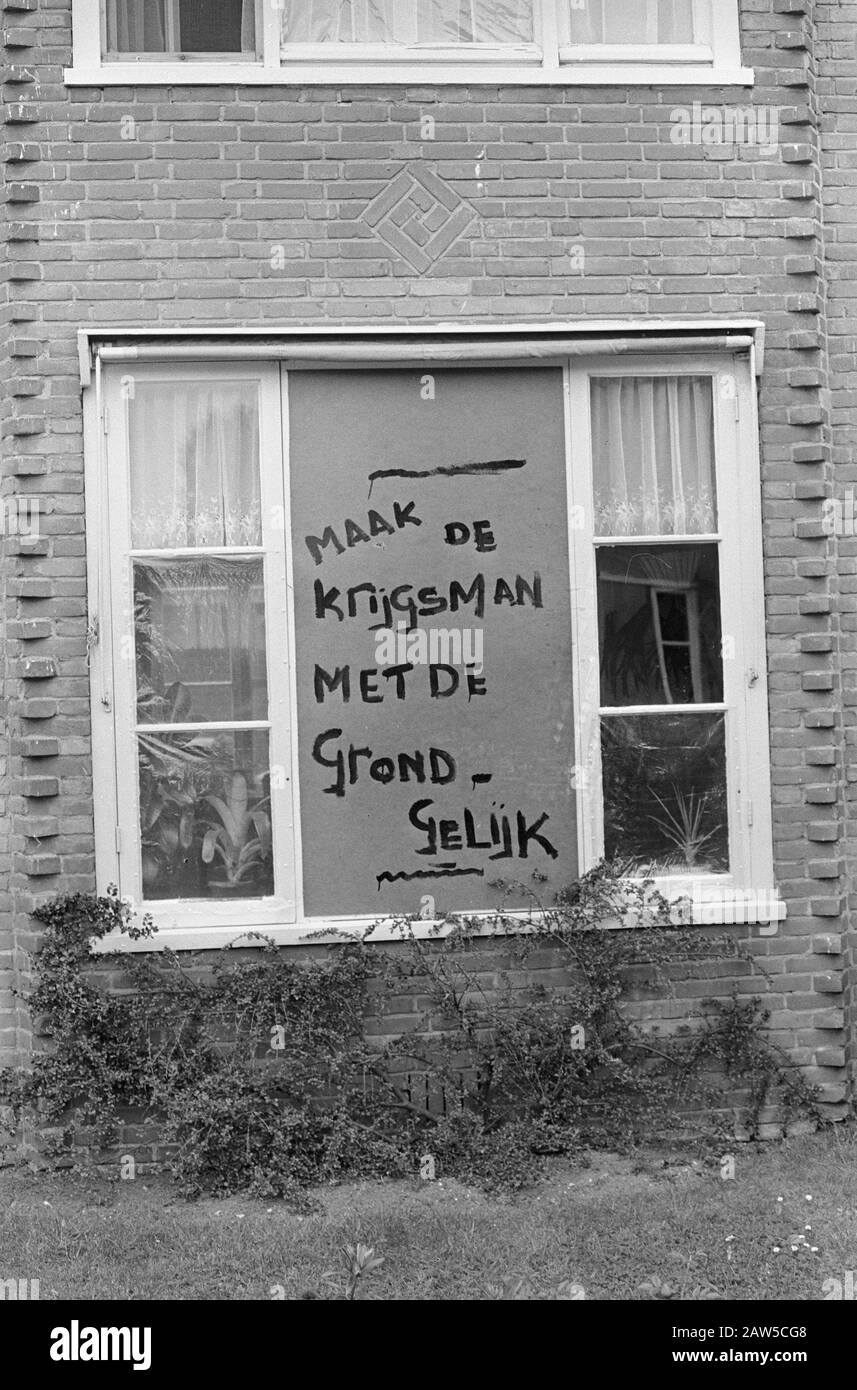 MAAK DE
KRIJGSMAN
MET DE
GROND-
GELIJK
alamy
Image ID: 2AW5CG8
www.alamy.com